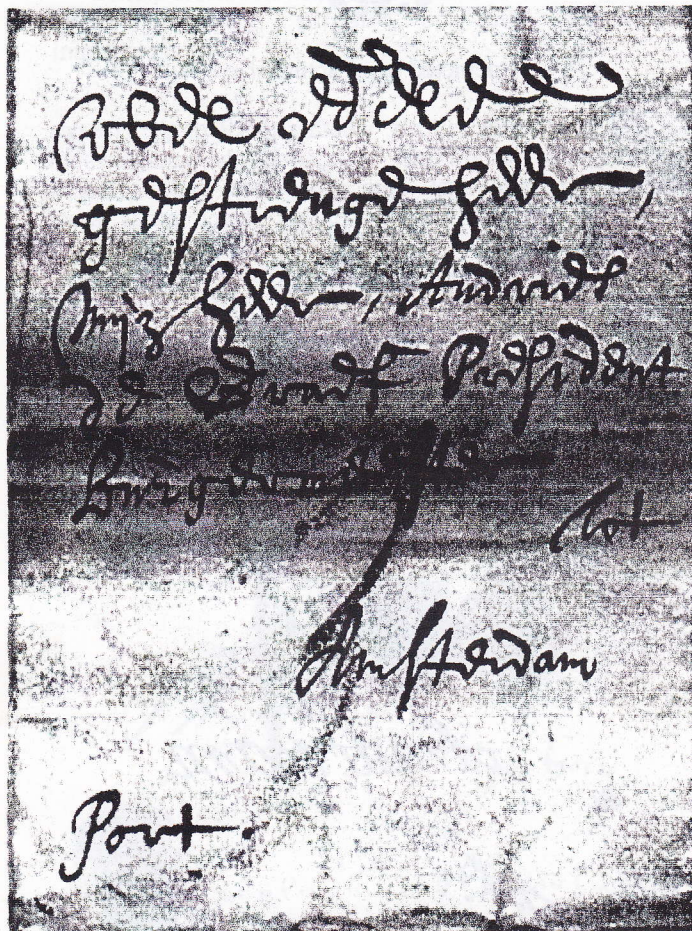 edele
gestrenge heer,
Mijn heer, Andries
de Graeff President
Burgermeester
tot
Amsterdam
Port.